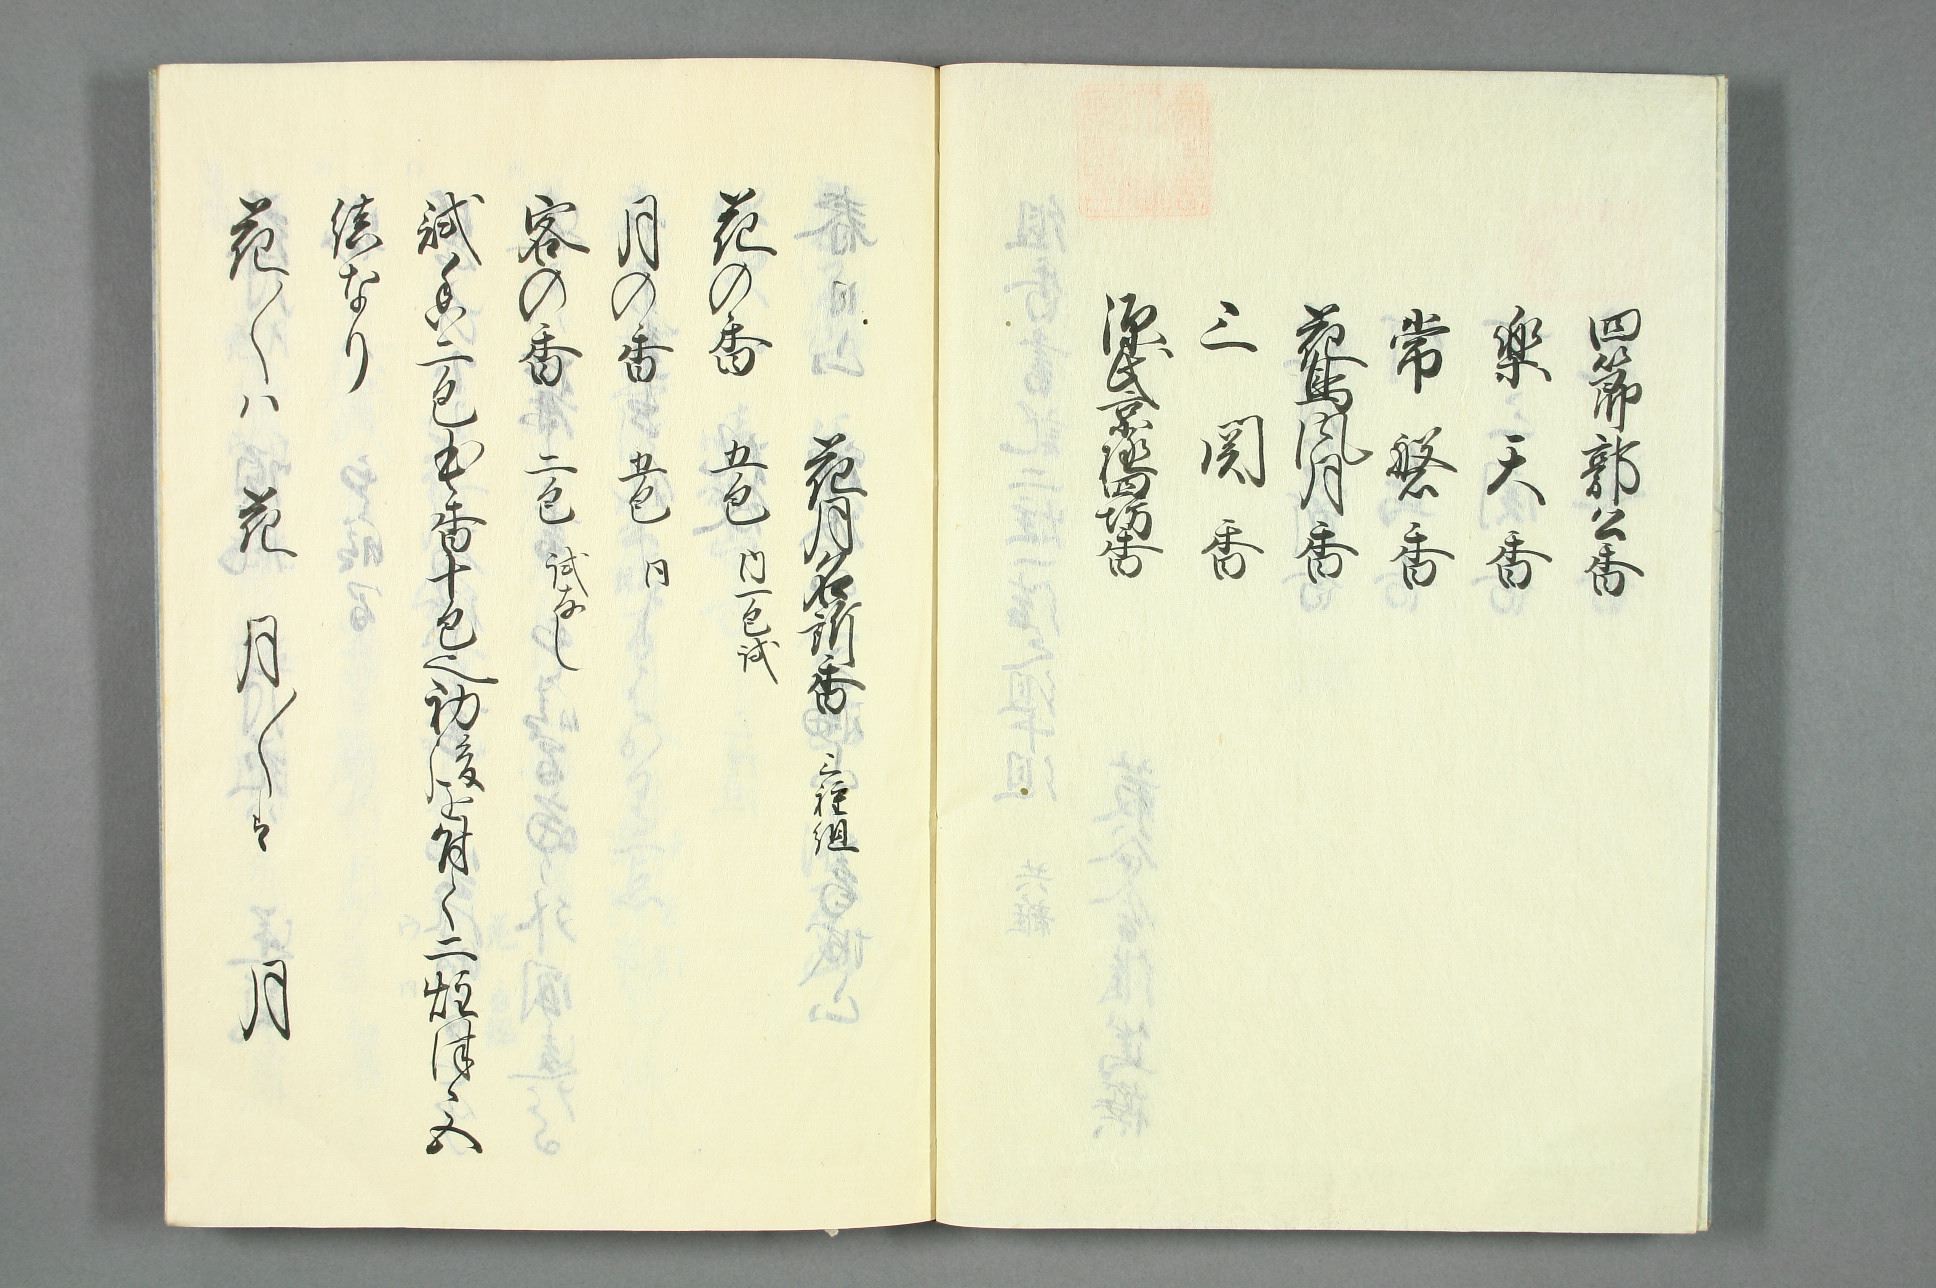 四節郭公香
楽天香
常盤香
花鳥風月香
三関香
源氏京極四坊香
花月名所香 三種組
花の香 五包 内一包試
月の香 五包 同
客の香 二包 試なし
試香二包出香十包之初後を付く二炷ツヽ五
結なり
花〱ハ花 月〱は 月